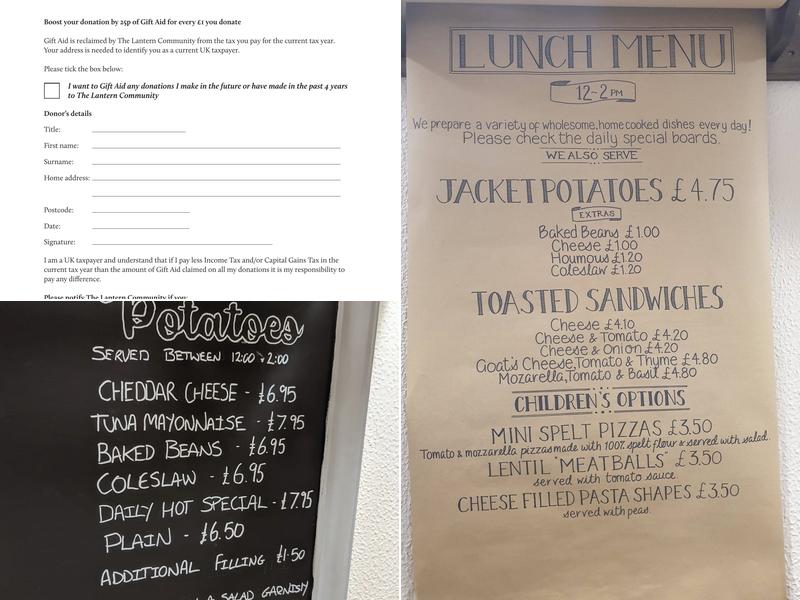 Boost your donation by 25p of Gift Aid for every £1 you donate
Gift Aid is reclaimed by The Lantern Community from the tax you pay for the current tax year.
Your address is needed to identify you as a current UK taxpayer.
Please tick the box below:
I want to Gift Aid any donations I make in the future or have made in the past 4 years
to The Lantern Community
Donor's details
Title:
First name:
Surname:
Home address:
Postcode:
Date:
Signature:
I am a UK taxpayer and understand that if I pay less Income Tax and/or Capital Gains Tax in the
current tax year than the amount of Gift Aid claimed on all my donations it is my responsibility to
pay any difference.
Please notify The Lantern Community if you:
Potatoes
SERVED BETWEEN 12:00 + 2:00
CHEDDAR CHEESE - £6.95
TUNA MAYONNAISE - £7.95
BAKED BEANS - £6.95
COLESLAW - £6.95
DAILY HOT SPECIAL - £7.95
PLAIN - £6.50
ADDITIONAL FILLING £1.50
A SALAD GARNISH
LUNCH MENU
12-2 PM
We prepare a variety of wholesome, home cooked dishes every day!
Please check the daily special boards.
WE ALSO SERVE
JACKET POTATOES £4.75
EXTRAS
Baked Beans £1.00
Cheese £1.00
Houmous £1.20
Coleslaw £1.20
TOASTED SANDWICHES
Cheese £4.10
Cheese & Tomato £4.20
Cheese & Onion £4.20
Goat's Cheese, Tomato & Thyme £4.80
Mozarella, Tomato & Basil £4.80
CHILDREN'S OPTIONS
MINI SPELT PIZZAS £3.50
Tomato & mozzarella pizzas made with 100% spelt flour & served with salad.
LENTIL "MEATBALLS" £3.50
served with tomato sauce.
CHEESE FILLED PASTA SHAPES £3.50
served with peas.